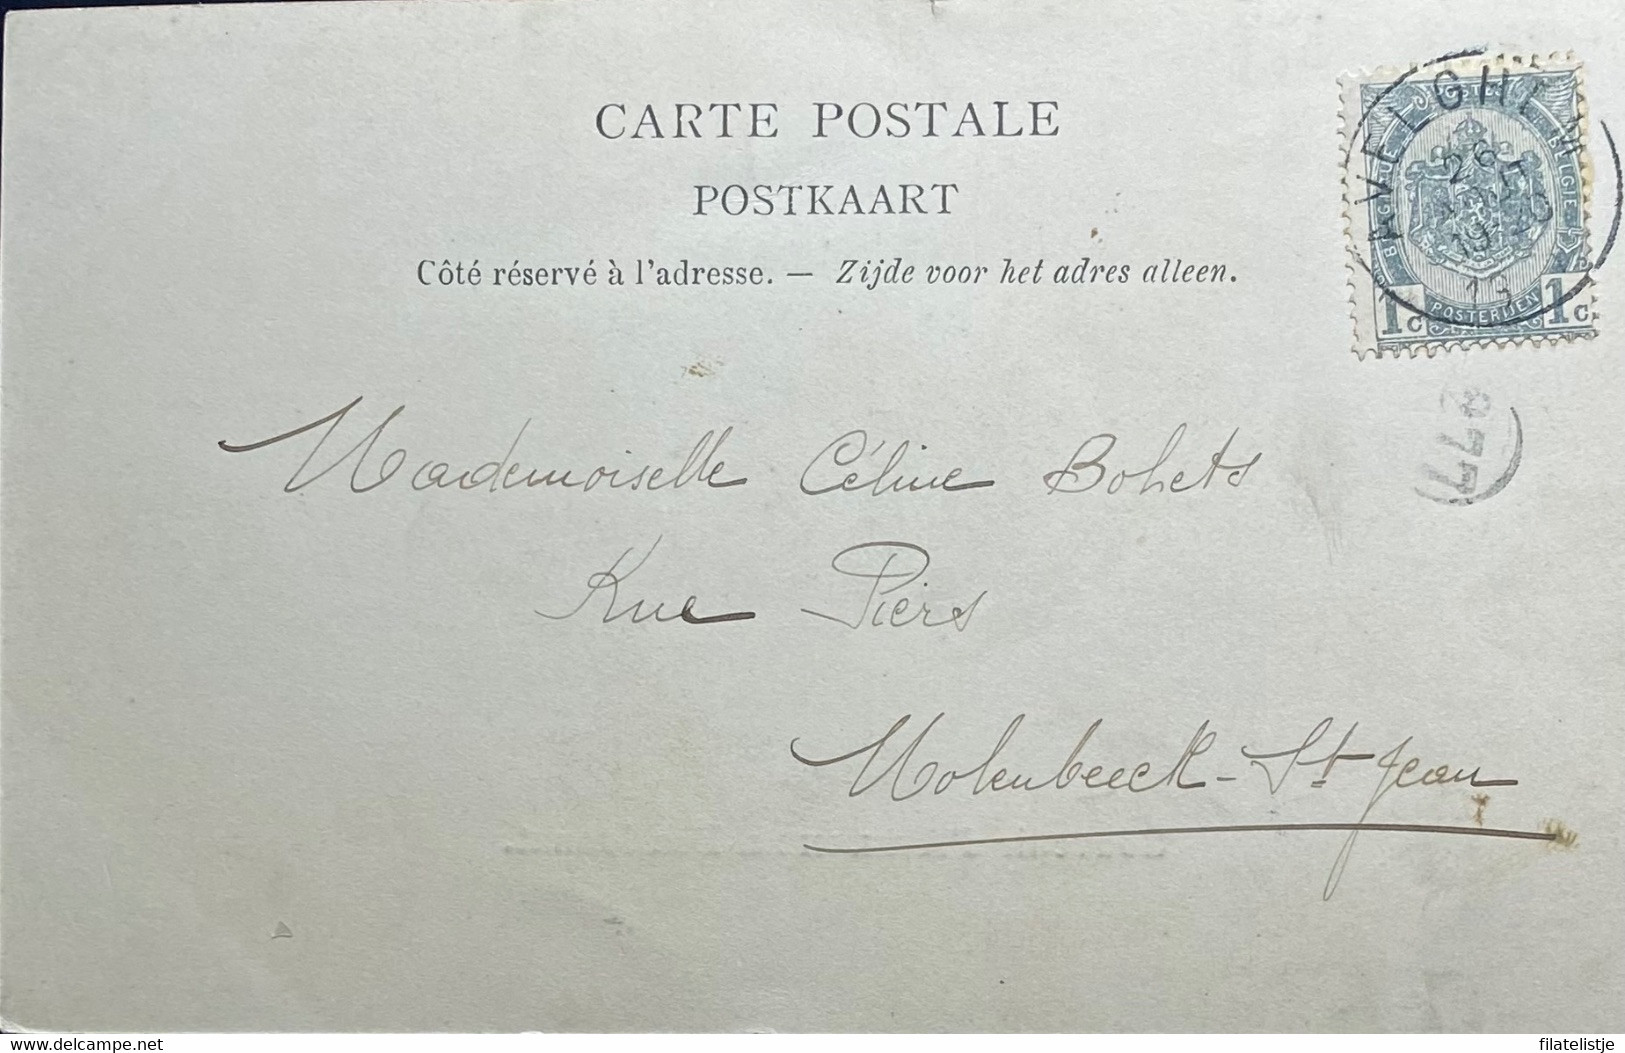 CARTE POSTALE
POSTKAART
Côté réservé à l'adresse. — Zijde voor het adres alleen.
AVELGHEM
26
13
1c POSTERIJEN 1c
877
Mademoiselle Céline Bohets
Rue Piers
Molenbeeck-St Jean
delcampe.net
filatelistje